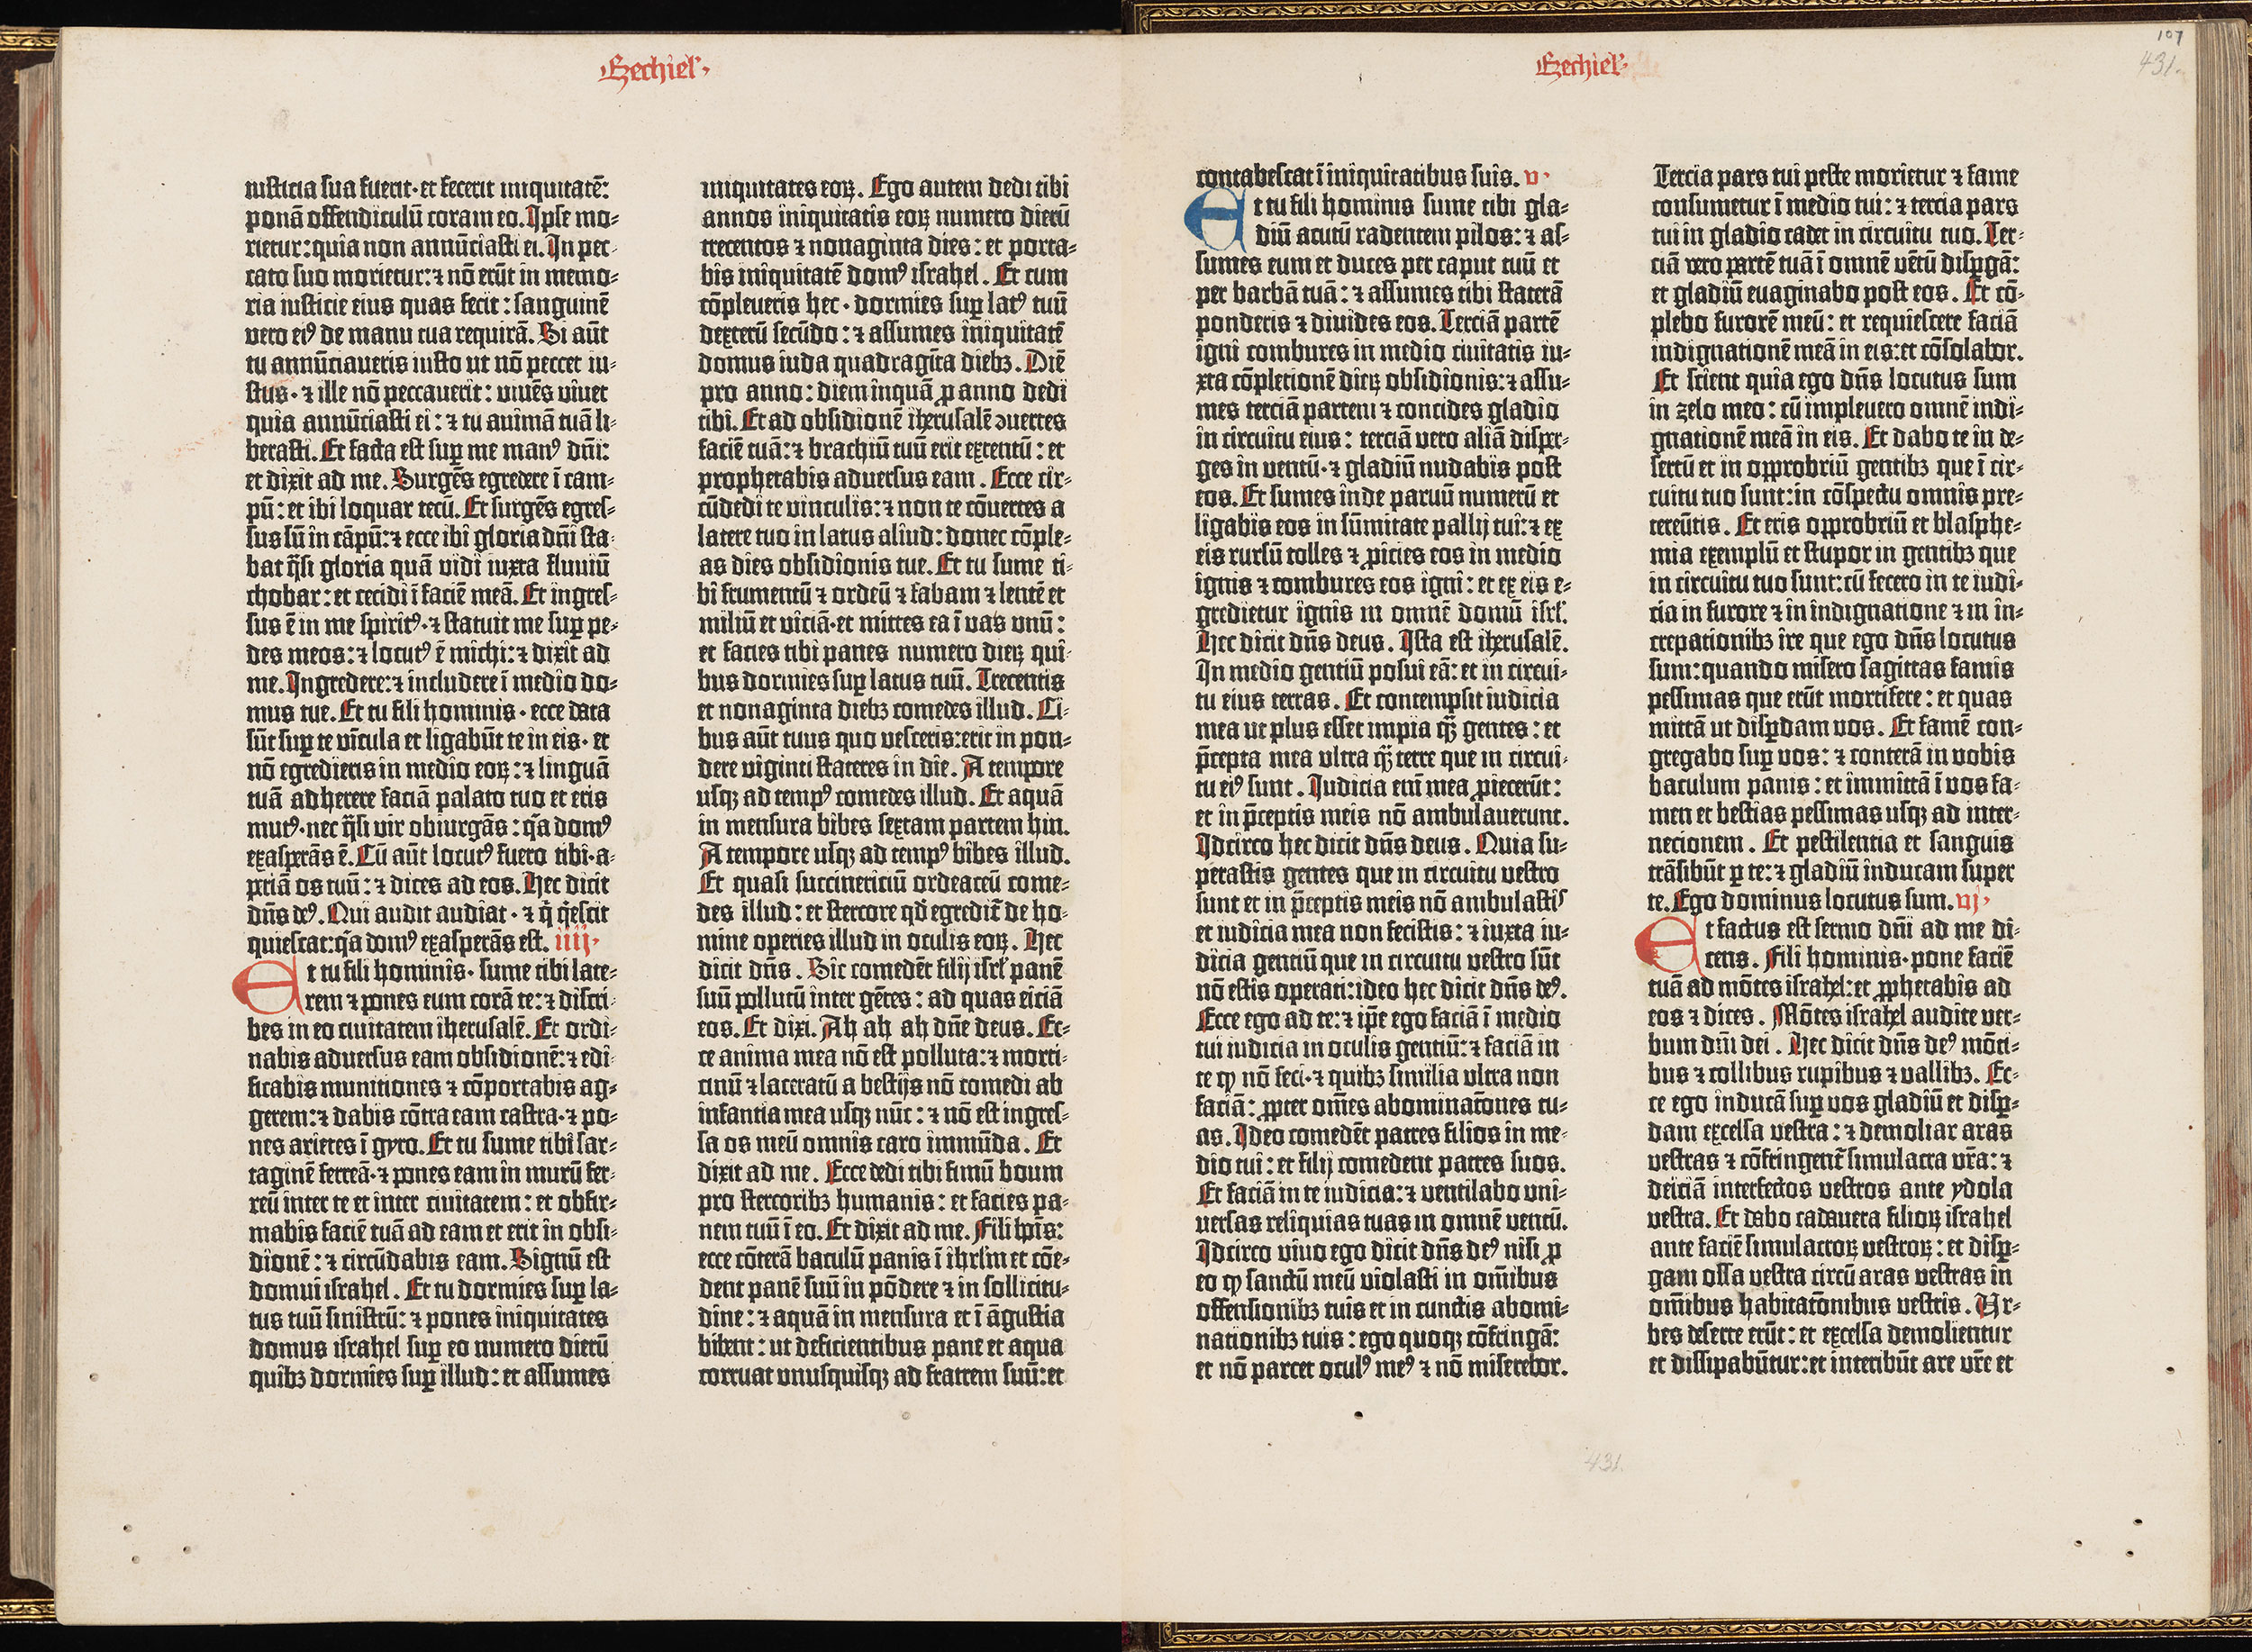 Ezechiel.
iusticia sua fuerit· et fecerit iniquitatē:
ponā offendiculū coram eo. Ipse mo-
rietur: quia non annūciasti ei. In pec-
cato suo morietur: ⁊ nō erūt in memo-
ria iusticie eius quas fecit: sanguinē
vero eiꝰ de manu tua requirā. Si aūt
tu annūciaveris iusto ut nō peccet iu-
stus· ⁊ ille nō peccaverit: vivēs vivet
quia annūciasti ei: ⁊ tu animā tuā li-
berasti. Et facta est suꝑ me manꝰ dn̄i:
et dixit ad me. Surgēs egredere ī cam-
pū: et ibi loquar tecū. Et surgēs egres-
sus sū in cāpū: ⁊ ecce ibi gloria dn̄i sta-
bat q̄si gloria quā vidi iuxta fluviū
chobar: et cecidi ī faciē meā. Et ingres-
sus ē in me spiritꝰ· ⁊ statuit me suꝑ pe-
des meos: ⁊ locutꝰ ē michi: ⁊ dixit ad
me. Ingredere: ⁊ includere ī medio do-
mus tue. Et tu fili hominis· ecce data
sūt suꝑ te vīcula et ligabūt te in eis· et
nō egredieris in medio eoꝝ: ⁊ linguā
tuā adherere faciā palato tuo et eris
mutꝰ· nec q̄si vir obiurgās: q̄a domꝰ
exasꝑās ē. Cū aūt locutꝰ fuero tibi· a-
ꝑiā os tuū: ⁊ dices ad eos. Hec dicit
dn̄s deꝰ. Qui audit audiat· ⁊ q̄ q̄escit
quiescat: q̄a domꝰ exasperās est. iiij·
Et tu fili hominis· sume tibi late-
rem ⁊ pones eum corā te: ⁊ discri-
bes in eo civitatem iherusalē. Et ordi-
nabis adversus eam obsidionē: ⁊ edi-
ficabis munitiones ⁊ cōportabis ag-
gerem: ⁊ dabis cōtra eam castra· ⁊ po-
nes arietes ī gyro. Et tu sume tibi sar-
taginē ferreā· ⁊ pones eam in murū fer-
reū inter te et inter civitatem: et obfir-
mabis faciē tuā ad eam et erit in obsi-
dionē: ⁊ circūdabis eam. Signū est
domui israhel. Et tu dormies suꝑ la-
tus tuū sinistrū: ⁊ pones iniquitates
domus israhel suꝑ eo numero dierū
quibꝫ dormies suꝑ illud: et assumes
iniquitates eoꝝ. Ego autem dedi tibi
annos iniquitatis eoꝝ numero dierū
trecentos ⁊ nonaginta dies: et porta-
bis iniquitatē domꝰ israhel. Et cum
cōpleveris hec· dormies suꝑ latꝰ tuū
dexterū secūdo: ⁊ assumes iniquitatē
domus iuda quadragīta diebꝫ. Diē
pro anno: diem inquā ꝓ anno dedi
tibi. Et ad obsidionē iherusalē ꝯvertes
faciē tuā: ⁊ brachiū tuū erit extentū: et
prophetabis adversus eam. Ecce cir-
cūdedi te vinculis: ⁊ non te cōvertes a
latere tuo in latus aliud: donec cōple-
as dies obsidionis tue. Et tu sume ti-
bi frumentū ⁊ ordeū ⁊ fabam ⁊ lentē et
miliū et viciā· et mittes ea ī vas unū:
et facies tibi panes numero dieꝝ qui-
bus dormies suꝑ latus tuū. Trecentis
et nonaginta diebꝫ comedes illud. Ci-
bus aūt tuus quo vesceris: erit in pon-
dere viginti stateres in die. A tempore
usqꝫ ad tempꝰ comedes illud. Et aquā
in mensura bibes sextam partem hin.
A tempore usqꝫ ad tempꝰ bibes illud.
Et quasi succinericiū ordeaceū come-
des illud: et stercore qd̄ egredit̄ de ho-
mine operies illud in oculis eoꝝ. Hec
dicit dn̄s. Sic comedēt filij isrl' panē
suū pollutū inter gētes: ad quas eiciā
eos. Et dixi. Ah ah ah dn̄e deus. Ec-
ce anima mea nō est polluta: ⁊ morti-
cinū ⁊ laceratū a bestijs nō comedi ab
infantia mea usqꝫ nūc: ⁊ nō est ingres-
sa os meū omnis caro immūda. Et
dixit ad me. Ecce dedi tibi fimū boum
pro stercoribꝫ humanis: et facies pa-
nem tuū ī eo. Et dixit ad me. Fili hoīs:
ecce cōterā baculū panis ī ihrlm et cōe-
dent panē suū in pōdere ⁊ in sollicitu-
dine: ⁊ aquā in mensura et ī āgustia
bibent: ut deficientibus pane et aqua
corruat unusquisqꝫ ad fratrem suū: et
Ezechiel.
107
431.
contabescat ī iniquitatibus suis. v·
Et tu fili hominis sume tibi gla-
diū acutū radentem pilos: ⁊ as-
sumes eum et duces per caput tuū et
per barbā tuā: ⁊ assumes tibi staterā
ponderis ⁊ divides eos. Terciā partē
igni combures in medio civitatis iu-
xta cōpletionē dieꝝ obsidionis: ⁊ assu-
mes terciā partem ⁊ concides gladio
in circuitu eius: terciā vero aliā disper-
ges in ventū· ⁊ gladiū nudabis post
eos. Et sumes inde parvū numerū et
ligabis eos in sūmitate pallij tui: ⁊ ex
eis rursū tolles ⁊ ꝓicies eos in medio
ignis ⁊ combures eos igni: et ex eis e-
gredietur ignis in omnē domū isrl'.
Hec dicit dn̄s deus. Ista est iherusalē.
In medio gentiū posui eā: et in circui-
tu eius terras. Et contempsit iudicia
mea ut plus esset impia qꝫ̄ gentes: et
p̄cepta mea ultra qꝫ̄ terre que in circui-
tu eiꝰ sunt. Iudicia eni͂ mea ꝓiecerūt:
et in p̄ceptis meis nō ambulaverunt.
Idcirco hec dicit dn̄s deus. Quia su-
perastis gentes que in circuitu vestro
sunt et in p̄ceptis meis nō ambulastis
et iudicia mea non fecistis: ⁊ iuxta iu-
dicia gentiū que in circuitu vestro sūt
nō estis operati: ideo hec dicit dn̄s deꝰ.
Ecce ego ad te: ⁊ ip̄e ego faciā ī medio
tui iudicia in oculis gentiū: ⁊ faciā in
te qꝫ nō feci· ⁊ quibꝫ similia ultra non
faciā: ꝓpter om̄es abominatōnes tu-
as. Ideo comedēt patres filios in me-
dio tui: et filij comedent patres suos.
Et faciā in te iudicia: ⁊ ventilabo uni-
versas reliquias tuas in omnē ventū.
Idcirco vivo ego dicit dn̄s deꝰ nisi ꝓ
eo qꝫ sanctū meū violasti in om̄ibus
offensionibꝫ tuis et in cunctis abomi-
nationibꝫ tuis: ego quoqꝫ cōfringā:
et nō parcet oculꝰ meꝰ ⁊ nō miserebor.
Tercia pars tui peste morietur ⁊ fame
consumetur ī medio tui: ⁊ tercia pars
tui in gladio cadet in circuitu tuo. Ter-
ciā vero partē tuā ī omnē vētū disꝑgā:
et gladiū evaginabo post eos. Et cō-
plebo furorē meū: et requiescere faciā
indignationē meā in eis: et cōsolabor.
Et scient quia ego dn̄s locutus sum
in zelo meo: cū implevero omnē indi-
gnationē meā in eis. Et dabo te in de-
sertū et in opprobriū gentibꝫ que ī cir-
cuitu tuo sunt: in cōspectu omnis pre-
tereūtis. Et eris opprobriū et blasphe-
mia exemplū et stupor in gentibꝫ que
in circuitu tuo sunt: cū fecero in te iudi-
cia in furore ⁊ in indignatione ⁊ in in-
crepationibꝫ ire que ego dn̄s locutus
sum: quando misero sagittas famis
pessimas que erūt mortifere: et quas
mittā ut disꝑdam vos. Et famē con-
gregabo suꝑ vos: ⁊ conterā in vobis
baculum panis: et immittā ī vos fa-
men et bestias pessimas usqꝫ ad inter-
necionem. Et pestilentia et sanguis
trāsibūt ꝑ te: ⁊ gladiū inducam super
te. Ego dominus locutus sum. vj·
Et factus est sermo dn̄i ad me di-
cens. Fili hominis· pone faciē
tuā ad mōtes israhel: et ꝓphetabis ad
eos ⁊ dices. Mōtes israhel audite ver-
bum dn̄i dei. Hec dicit dn̄s deꝰ mōti-
bus ⁊ collibus rupibus ⁊ vallibꝫ. Ec-
ce ego inducā suꝑ vos gladiū et disꝑ-
dam excelsa vestra: ⁊ demoliar aras
vestras ⁊ cōfringent̄ simulacra vr̄a: ⁊
deiciā interfectos vestros ante ydola
vestra. Et dabo cadavera filioꝝ israhel
ante faciē simulacroꝝ vestroꝝ: et disꝑ-
gam ossa vestra circū aras vestras in
om̄ibus habitatōnibus vestris. Ur-
bes deserte erūt: et excelsa demolientur
et dissipabūtur: et interibūt are vr̄e et
431.